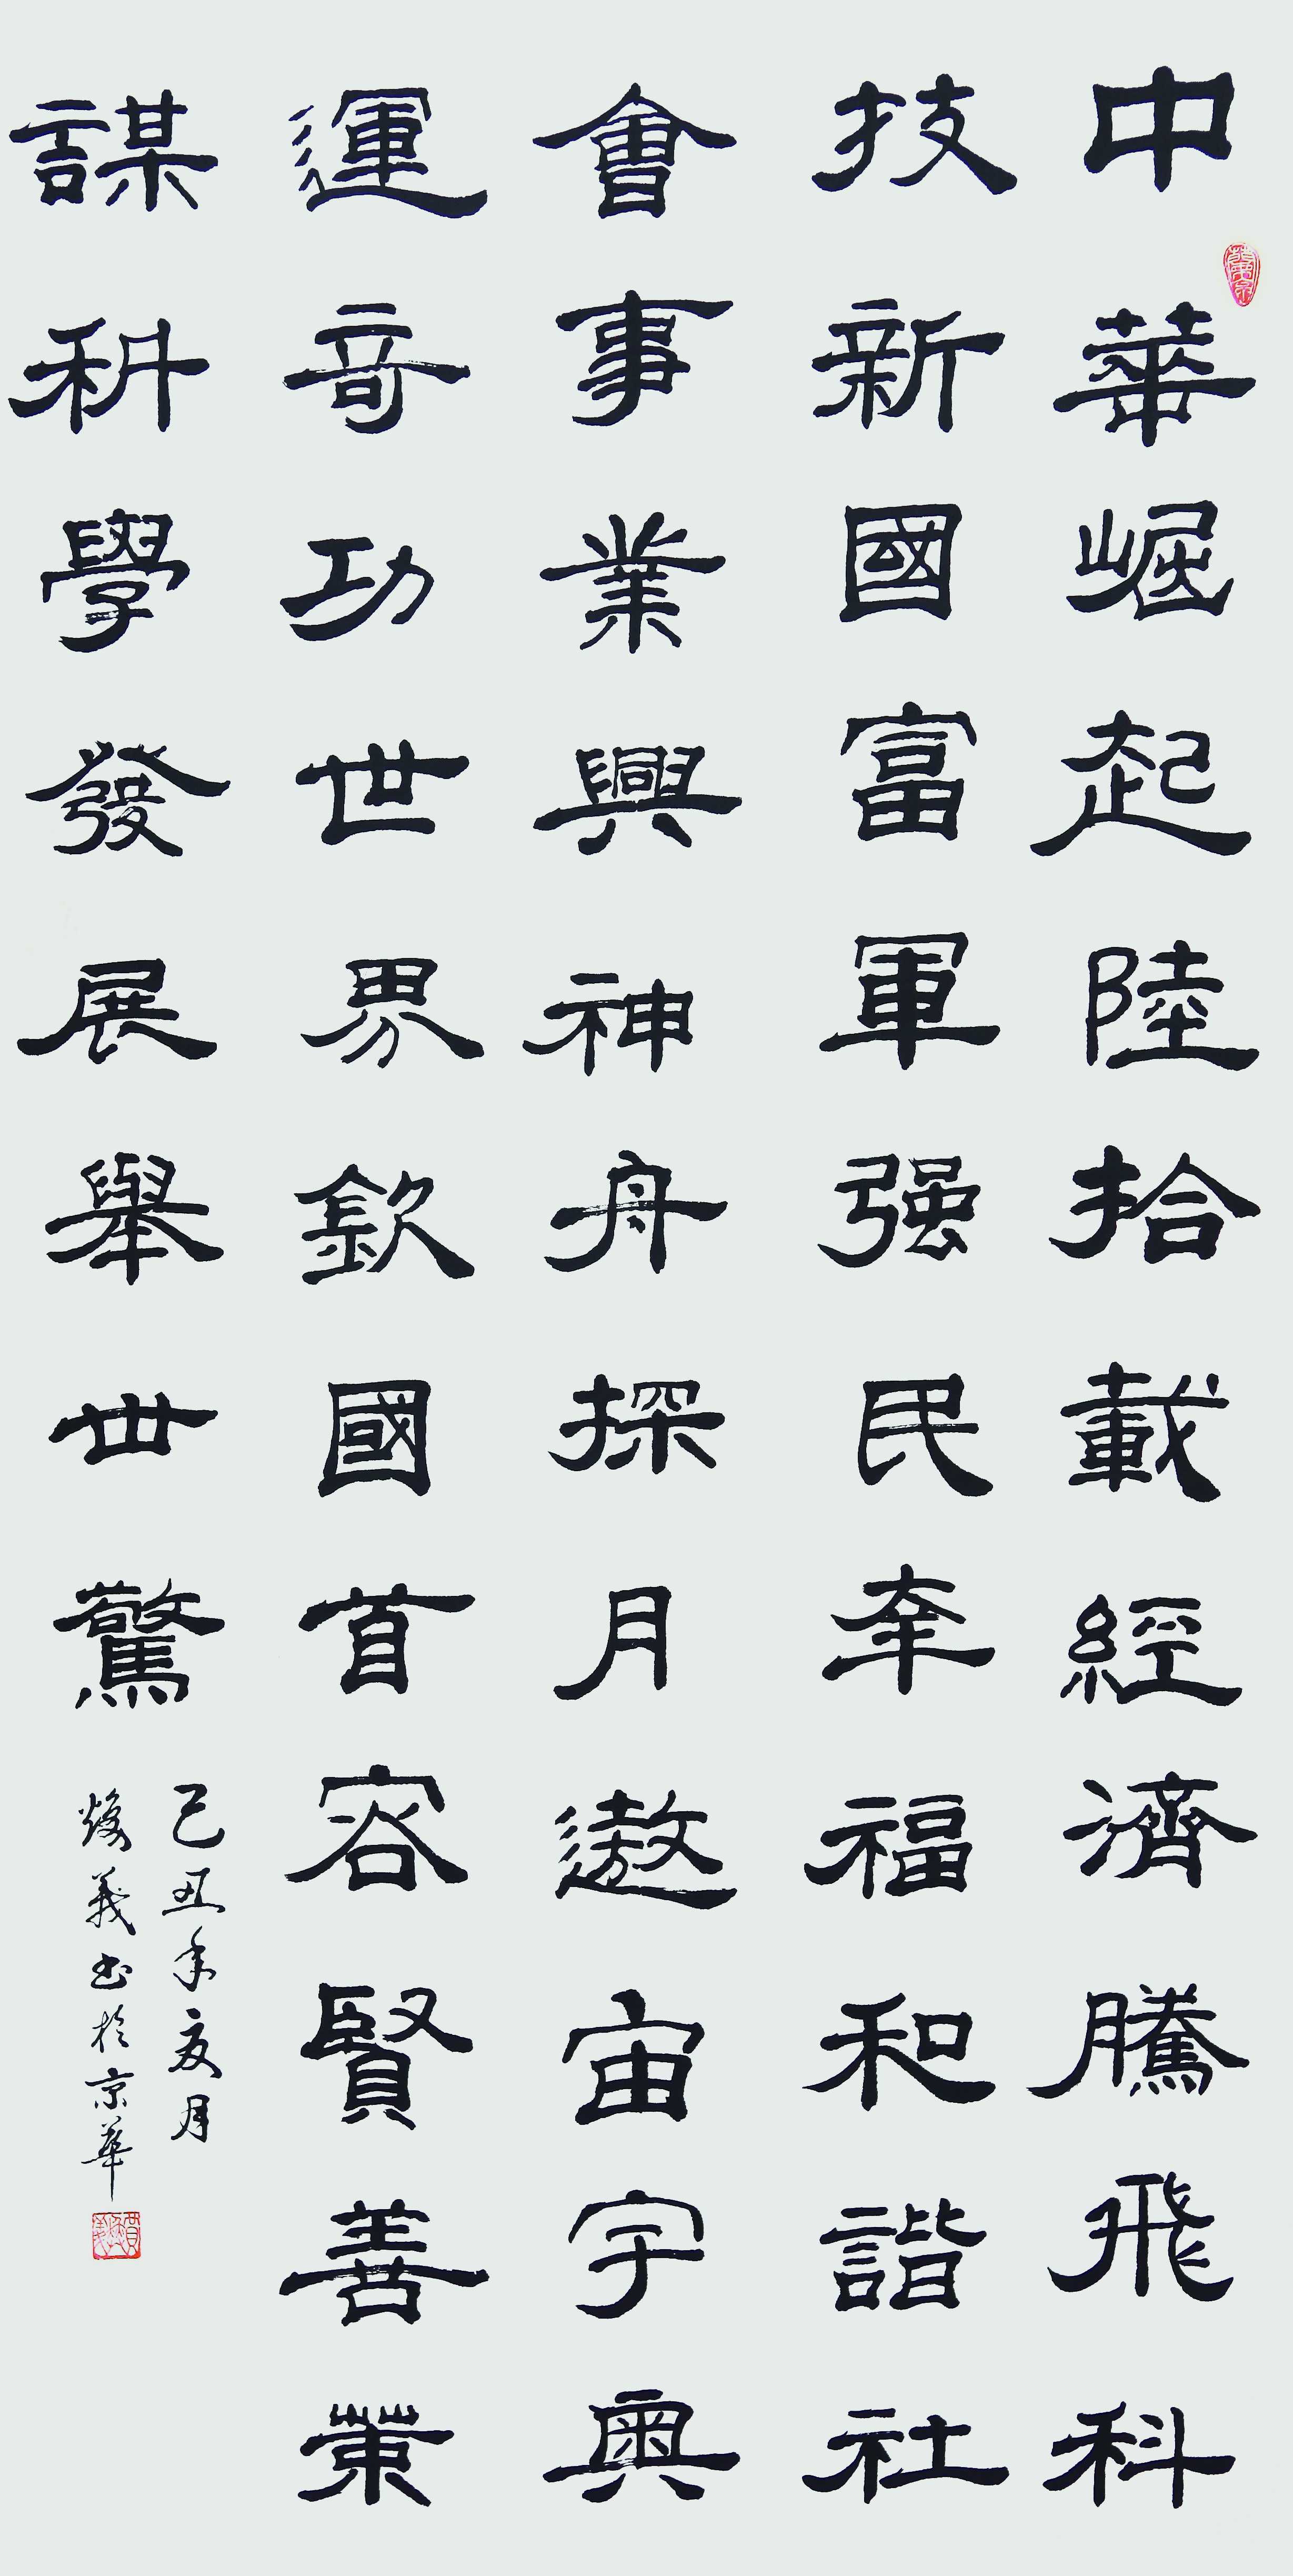 中華崛起陸拾載經濟騰飛科
技新國富軍强民幸福和諧社
會事業興神舟探月遨宙宇奧
運奇功世界欽國首容賢善策
謀科學發展舉世驚
己丑年夏月
焕義书於京華